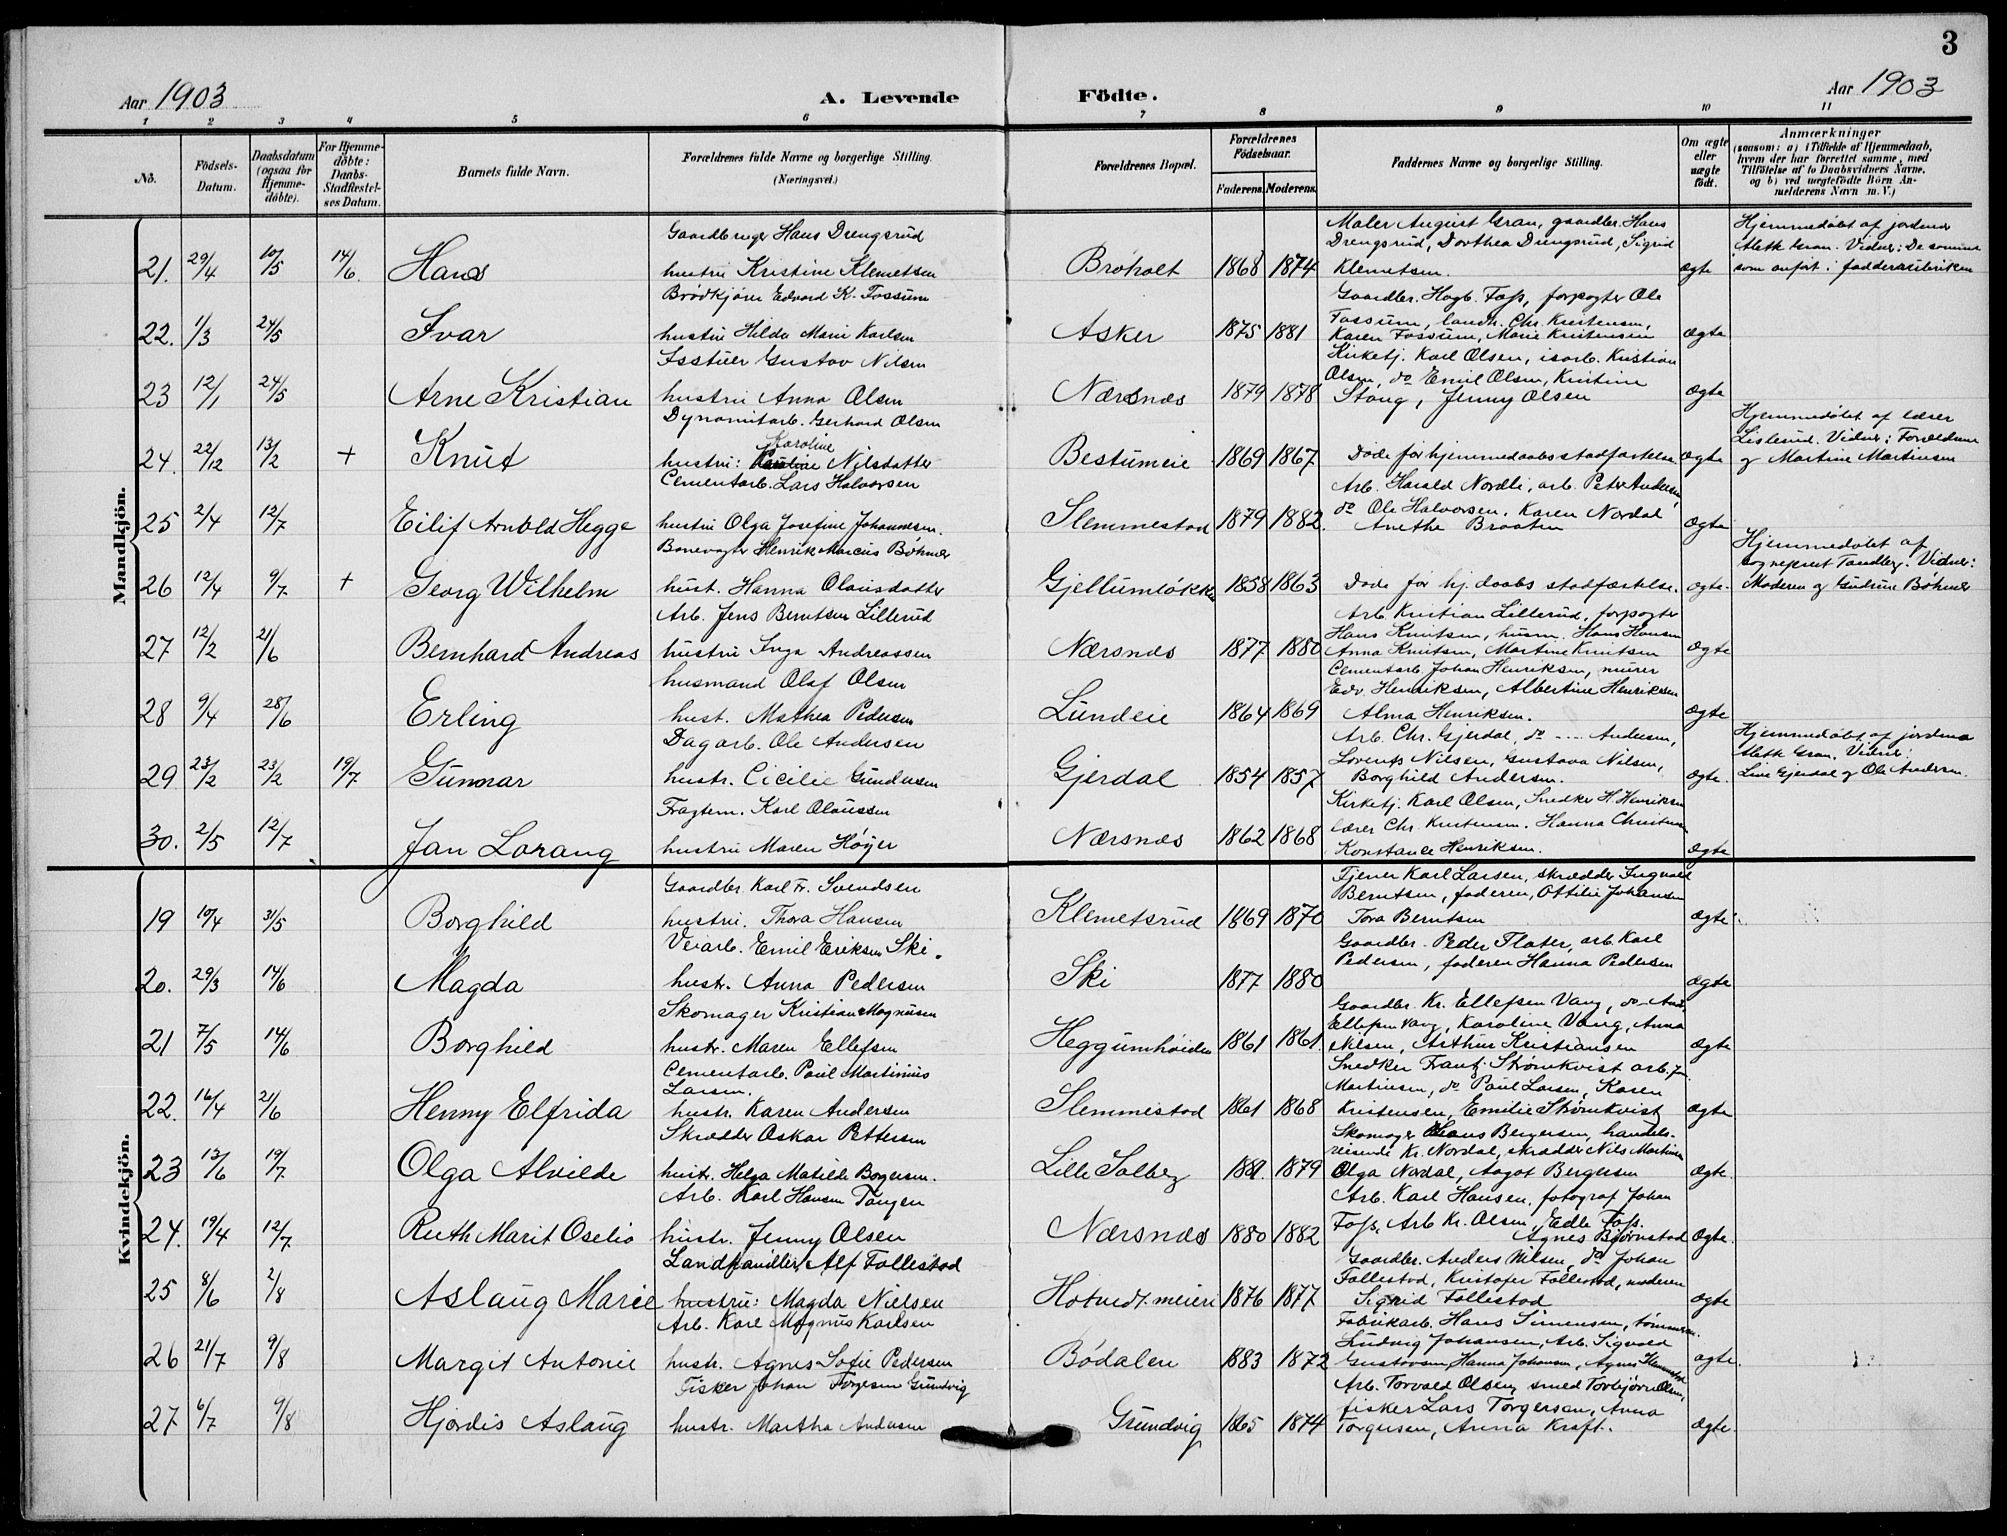 3
Aar 1903
A. Levende Födte.
Aar 1903
1 2 3 4 5 6 7 8 9 10 11
No.
Födsels-Datum.
Daabsdatum (ogsaa for Hjemme-döbte).
For Hjemme-döbte: Daabs-Stadfæstel-ses Datum.
Barnets fulde Navn.
Forældrenes fulde Navne og borgerlige Stilling.
(Næringsvei.)
Forældrenes Bopæl.
Forældrenes Födselsaar.
Faderens. Moderens.
Faddernes Navne og borgerlige Stilling.
Om ægte eller uægte födt.
Anmærkninger
(saasom: a) i Tilfælde af Hjemmedaab,
hvem der har forrettet samme, med
Tilföielse af to Daabsvidners Navne,
og b) ved uægtefödte Börn An-
melderens Navn m. V.)
Mandkjön.
Gaardbruger Hans Drengsrud
21. 29/4 10/5 14/6. Hans hustru Kristine Klemetsen Brøholt 1868 1874
Maler August Gran, gaardbr. Hans
Drengsrud, Dorthea Drengsrud, Sigrid
Klemetsen. ægte
Hjemmedøbt af jordmor
Meth Gran. Vidner: De samme
som anført i fadderrubriken
Brødkjører Edvard K. Fossum
22. 1/3 24/5 Ivar hustru Hilda Marie Karlsen Asker 1875 1881
Gaardbr. Hagb. Foss, forpagter Ole
Fossum, landh. Chr. Kristensen,
Karen Fossum, Marie Kristensen ægte
Isstuer Gustav Nilsen
23 12/1 24/5 Arne Kristian hustru Anna Olsen Nærsnæs 1879 1878
Kirketj. Karl Olsen, isarb. Kristian
Olsen, do Emil Olsen, Kristine
Stang, Jenny Olsen ægte
Dynamitarb. Gerhard Olsen
24. 22/12 13/2 + Knut hustru: Karoline Nilsdatter Bestumeie 1869 1867
Døde før hjemmedaabsstadfæstelse ægte
Hjemmedøbt af lærer
Lislerud. Vidner: Forældrene
og Martine Martinsen
Cementarb. Lars Halvorsen
25 2/4 12/7 Eilif Arnold Hegge hustru Olga Josefine Johannesen. Slemmestad 1879 1882.
Arb. Harald Nordli, arb. Peter Andersen,
do Ole Halvorsen. Karen Nordal,
Anethe Braaten ægte
Banevogter Henrik Marcus Bøhmer
26 12/4 9/7 + Georg Wilhelm hust. Hanna Olausdatter Gjellumløkken 1858 1863
Døde før hj.daabs stadfæstelse. ægte.
Hjemmedøbt af
sognepræst Tandberg. Vidner:
Moderen og Gudrun Bøhmer
Arb. Jens Berntsen Lillerud
27 12/2 21/6 Bernhard Andreas hustru Inga Andreassen Nærsnæs 1877 1880
Arb. Kristian Lillerud, forpagter
Hans Knutsen, husm. Hans Hansen
Anna Knutsen, Martine Knutsen ægte
husmand Olaf Olsen
28 9/4 28/6 Erling hust. Mathea Pedersen Lundeie 1864 1869
Cementarb. Johan Henriksen, murer
Edv. Henriksen, Albertine Henriksen
Alma Henriksen. ægte
Dagarb. Ole Andersen
29 23/2 23/2 19/7 Gunnar hustr. Cicilie Gundersen Gjerdal 1854 1857
Arb. Chr. Gjerdal, do --- Andersen,
Lorents Nilsen, Gustava Nilsen,
Borghild Andersen. ægte.
Hjemmedøbt af jordmo
Meth Gran. Vidner:
Line Gjerdal og Ole Andersen.
Fragtem. Karl Olaussen
30. 2/5 12/7 Jan Lorang hustru Maren Höyer Nærsnæs 1862 1868
Kirketj. Karl Olsen, Snedker H. Henriksen
lærer Chr. Kristensen. Hanna Christensen
Konstance Henriksen. ægte
Kvindekjön.
Gaardbr. Karl Fr. Svendsen
19 10/4 31/5 Borghild hustru. Thora Hansen Klemetsrud 1869 1870
Tjener Karl Larsen, skrædder Ingvald
Berntsen, faderen, Ottilie Johansen
Tora Berntsen ægte
Veiarb. Emil Eriksen Ski.
20. 29/3 14/6 Magda hustr. Anna Pedersen Ski 1877 1880
Gaardbr. Peder Flater, arb. Karl
Pedersen, faderen Hanna Pedersen ægte
Skomager Kristian Magnusen
21 7/5 14/6 Borghild hustr. Maren Ellefsen Heggumhøiden 1861 1861.
Gaardbr. Kr. Ellefsen Vang, do And.
Ellefsen Vang, Karoline Vang, Anna
Nilsen, Arthur Kristiansen ægte
Cementarb. Paul Martinius
Larsen.
22. 16/4 21/6 Henny Elfrida hustr. Karen Andersen Slemmestad 1861 1868
Snedker Frantz Strømkvist arb. J.
Martinsen, do Paul Larsen, Karen
Kristensen, Emilie Strømkvist ægte
Skrædder Oskar Pettersen
23 12/6 19/7. Olga Alvilde hustr. Helga Matilde Borgersen. Lille Solberg 1881. 1879
Skomager Hans Bergersen, handels-
reisende Kr. Nordal, skrædder Nils Martinsen
Olga Nordal, Aagot Bergersen ægte.
Arb. Karl Hansen Tangen
24. 19/4 12/7. Ruth Marit Oselio hustr. Jenny Olsen Nærsnæs 1880 1882
Arb. Karl Hansen, fotograf Johan
Foss, Arb Kr. Olsen, Edle Foss.
Agnes Bjørnstad ægte.
Landhandler Alf Follestad
25 8/6 2/8 Aslaug Marie hustru: Magda Nielsen Hotvedt meieri 1876 1877
Gaardbr. Anders Nilsen, do Johan
Follestad, Kristofer Follestad, moderen
Sigrid Follestad ægte
Arb. Karl Magnus Karlsen
26 21/7 9/8 Margit Antonie hustr. Agnes Sofie Pedersen Bødalen 1883 1872
Fabrikarb. Hans Simensen, tømmerm.
Ludvig Johansen, Arb. Sigvald
Gustavsen, Hanna Johansen, Agnes ægte.
Fisker Johan Torgersen Grundvig
27 6/7 9/8 Hjørdis Aslaug hustr. Martha Andersen Grundvig 1865 1874
Arb. Torvald Olsen, smed Torbjørn Olsen,
fisker Lars Torgersen, Anna
Torgersen, Anna Kraft. ægte.